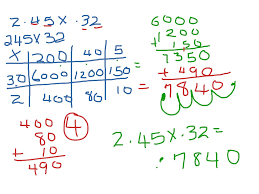 2.45 X .32
245 X 32
X 200 40 5
30 6000 1200 150
2 400 80 10
400
80
+ 10
490
4
6000
1200
+ 150
7350
+ 490
7840
=
=
2.45 X .32 =
.7840